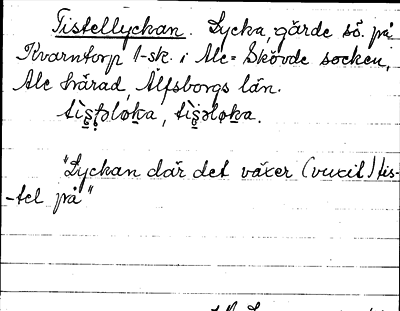 Tistellyckan. Lycka, gärde sö. på
Kvarntorp 1-sk. i Ale-Skövde socken,
Ale härad, Älfsborgs län.
"Lyckan där det växer (vuxit) tis-
-tel på"